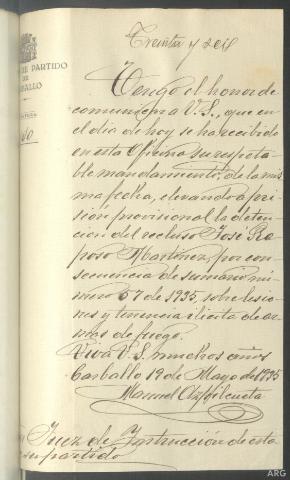 Treinta y seis
DE PARTIDO
DE
BALLO
Tengo el honor de
comunicar a V.S., que en
el dia de hoy se ha recibido
en esta Oficina su respeta-
ble mandamiento, de la mis
ma fecha, elevando a pri
sión provisional la deten-
cion del recluso José Ra
poso Martinez, por con-
secuencia de sumario nú-
mero 57 de 1935, sobre lesio-
nes y tenencia ilicita de ar-
mas de fuego.
Viva V.S. muchos años
Carballo 19 de Mayo de 1935
Manuel
Juez de Instrucción de esta
su partido
ARG